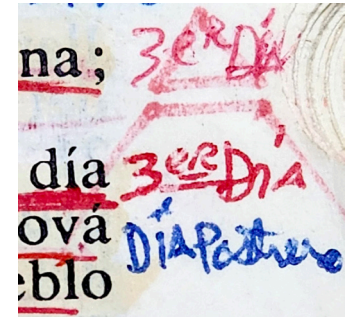 na; 3er Día
día 3er Día
ová Día Postrero
eblo